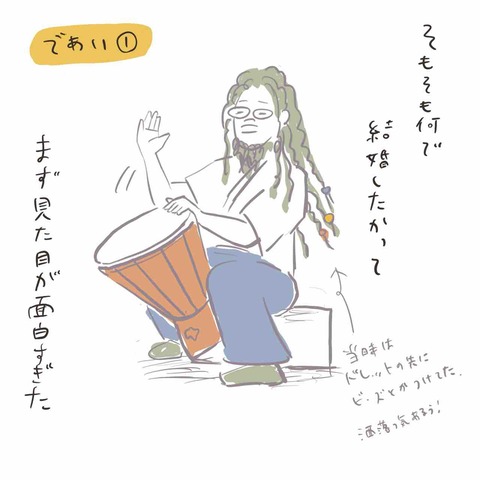 であい①
そもそも何で
結婚したかって
まず見た目が面白すぎた
当時は
ドレットの先に
ビーズとかつけてた。
洒落っ気あるう!